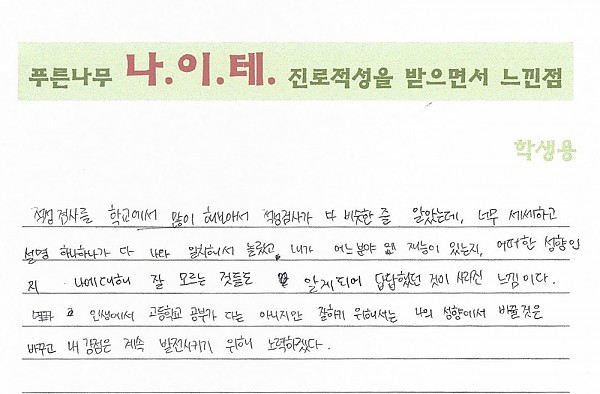 푸른나무 나.이.테. 진로적성을 받으면서 느낀점
학생용
적성 검사를 학교에서 많이 해보아서 적성검사가 다 비슷한 줄 알았는데, 너무 세세하고
설명 하나하나가 다 나와 일치해서 놀랐고, 내가 어느 분야에 재능이 있는지, 어떠한 성향인
지 나에 대해 잘 모르는 것들도 알게 되어 답답했던 것이 사라진 느낌이다.
인생에서 고등학교 공부가 다는 아니지만 잘하기 위해서는 나의 성향에서 바꿀 것은
바꾸고 내 강점은 계속 발전시키기 위해 노력하겠다.